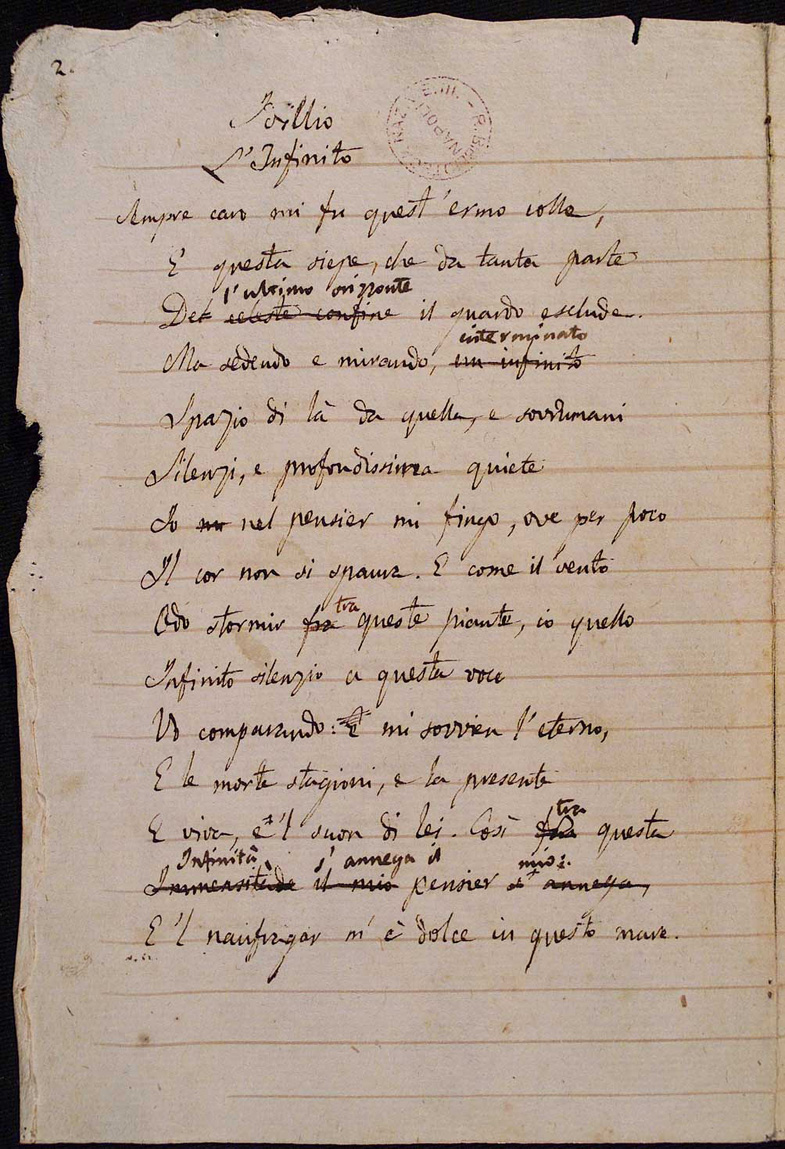 2.
Idillio
L'Infinito
R. BIBLIOTECA NAZ. V. E. III. NAPOLI
Sempre caro mi fu quest'ermo colle,
E questa siepe, che da tanta parte
l'ultimo orizzonte
Del celeste confine il guardo esclude.
interminato
Ma sedendo e mirando, un infinito
Spazio di là da quella, e sovrumani
Silenzi, e profondissima quiete
Io nel pensier mi fingo, ove per poco
Il cor non si spaura. E come il vento
tra
Odo stormir fra queste piante, io quello
Infinito silenzio a questa voce
Vo comparando: E mi sovvien l'eterno,
E le morte stagioni, e la presente
tra
E viva, e 'l suon di lei. Così fra questa
Infinità s'annega il mio:
Immensitade il mio pensier s'annega,
E 'l naufragar m'è dolce in questo mare.